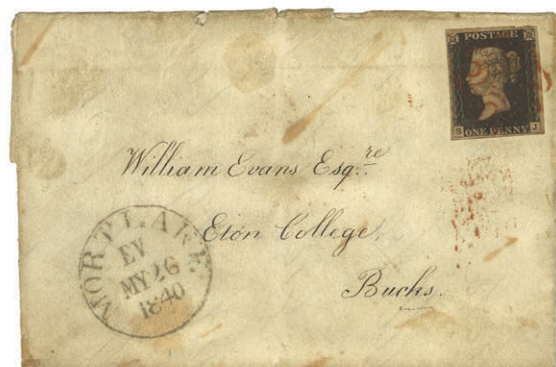 POSTAGE
S ONE PENNY J
William Evans Esqre
Eton College,
Bucks.
MORTLAKE
EV
MY 26
1840